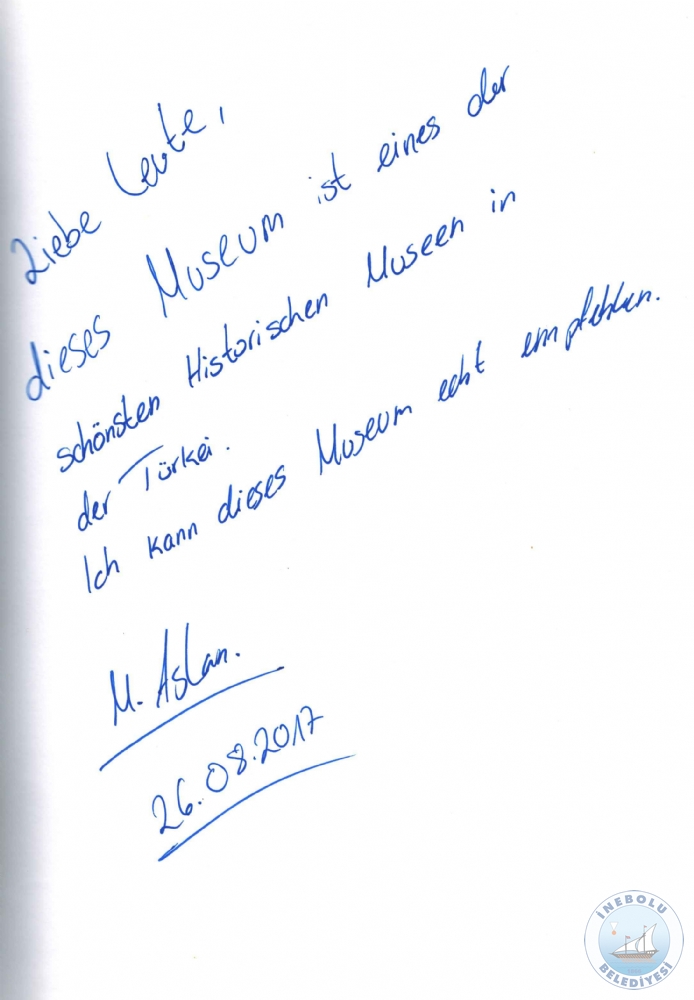 Liebe Leute,
dieses Museum ist eines der
schönsten Historischen Museen in
der Türkei.
Ich kann dieses Museum echt empfehlen.
M. Aslan.
26.08.2017
İNEBOLU
BELEDİYESİ